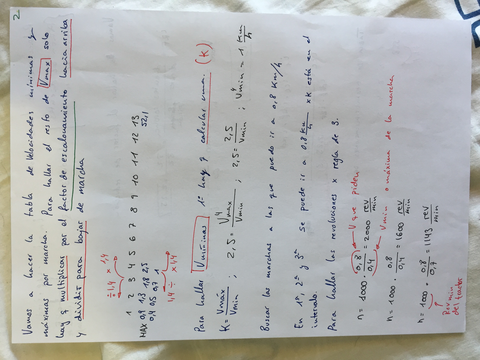 2
Vamos a hacer la tabla de velocidades mínimas y
máximas por marcha. Para hallar el resto de Vmax solo
hay q multiplicar por el factor de escalonamiento hacia arriba
y dividir para bajar de marcha
÷ 1,4 x 1,4
1 2 3 4 5 6 7 8 9 10 11 12 13
MAX 0,9 1,3 1,8 2,5 52,1
0,4 0,5 0,7 1
1,4 ÷ x 1,4
Para hallar Vmínimas 1º hay q calcular una. (K)
K = Vmáx / Vmin ; 2,5 = V4 máx / Vmin ; 2,5 = 2,5 / Vmin ; V4 min = 1 Km/h
Buscar las marchas a las que puedo ir a 0,8 Km/h
En 1ª, 2ª y 3ª Se puede ir a 0,8 Km/h xK está en el
intervalo.
Para hallar las revoluciones x regla de 3.
V que piden
n = 1000 · 0,8 / 0,4 = 2000 rev/min
Vmin o máxima de la marcha
n = 1000 · 0,8 / 0,5 = 1600 rev/min
n = 1000 · 0,8 / 0,7 = 1143 rev/min
Rev min
del tractor